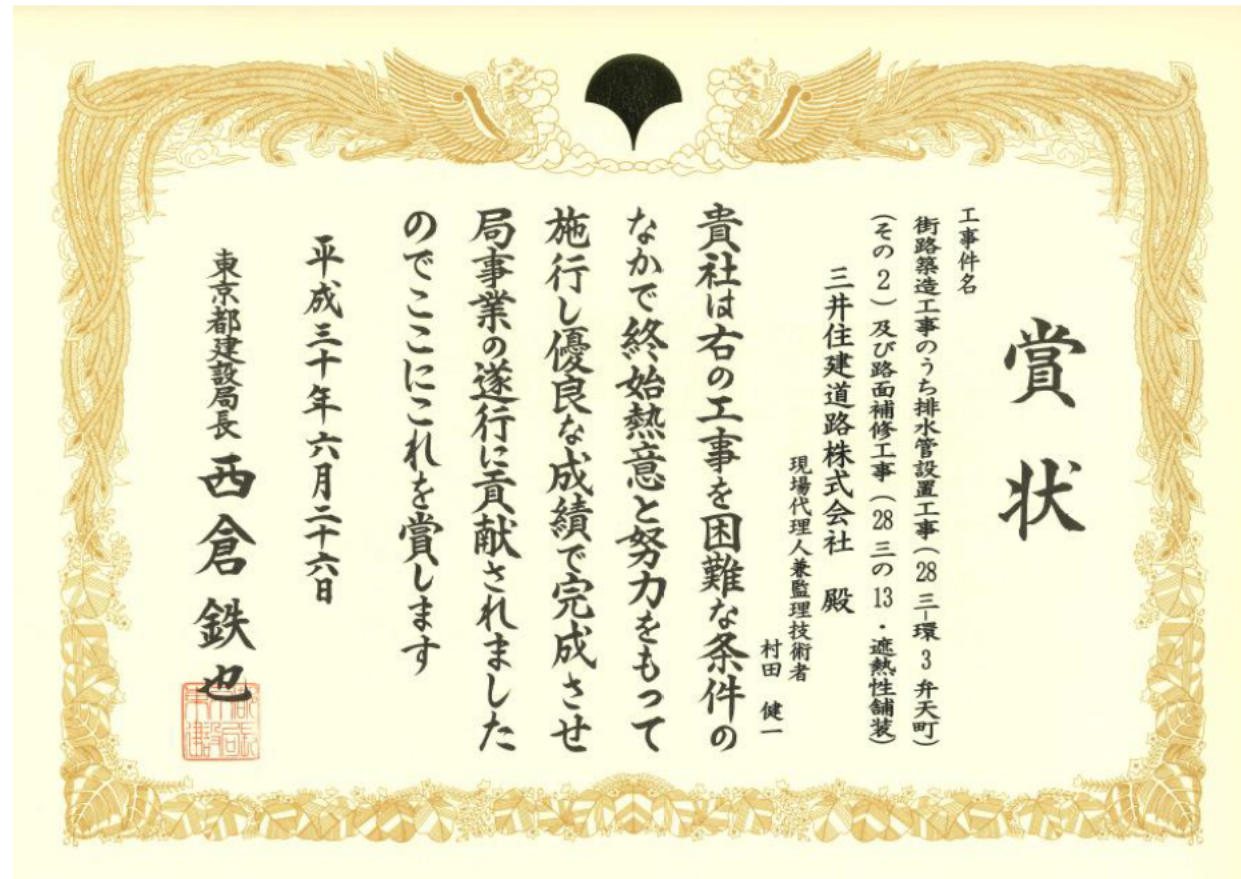 賞状
工事件名
街路築造工事のうち排水管設置工事(28三-環3弁天町)
(その2)及び路面補修工事(28三の13・遮熱性舗装)
三井住建道路株式会社 殿
現場代理人兼監理技術者
村田 健一
貴社は右の工事を困難な条件の
なかで終始熱意と努力をもって
施行し優良な成績で完成させ
局事業の遂行に貢献されました
のでここにこれを賞します
平成三十年六月二十六日
東京都建設局長 西倉鉄也